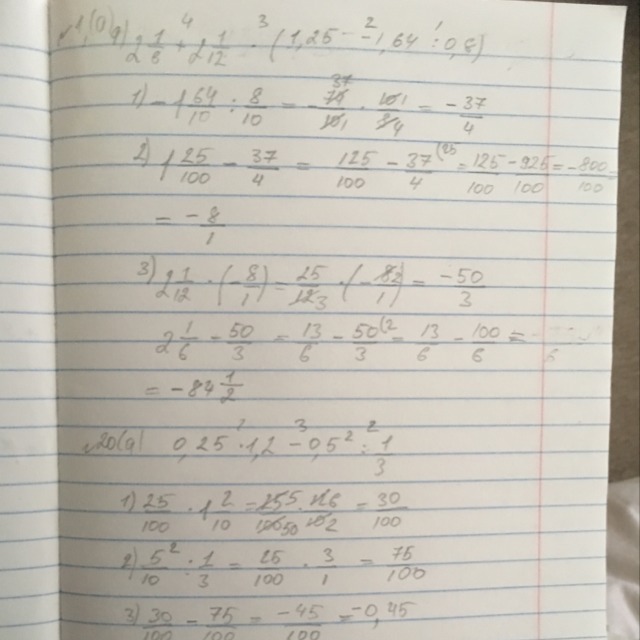 2 1/6 + 2 1/12 · (1,25 - 1,64 : 0,8)
1) - 1 64/10 : 8/10 = - 74/10 · 10/8 = -37/4
2) 1 25/100 - 37/4 = 125/100 - 37/4 (25 = 125/100 - 925/100 = -800/100 =
= -8/1
3) 2 1/12 · (-8/1) = 25/12 · (-8/1) = -50/3
2 1/6 - 50/3 = 13/6 - 50/3 (2 = 13/6 - 100/6 =
= -84 1/2
0,25 · 1,2 - 0,5² : 1/3
1) 25/100 · 1 2/10 = = 30/100
2) 5²/10 : 1/3 = 25/100 · 3/1 = 75/100
3) 30/100 - 75/100 = -45/100 = -0,45